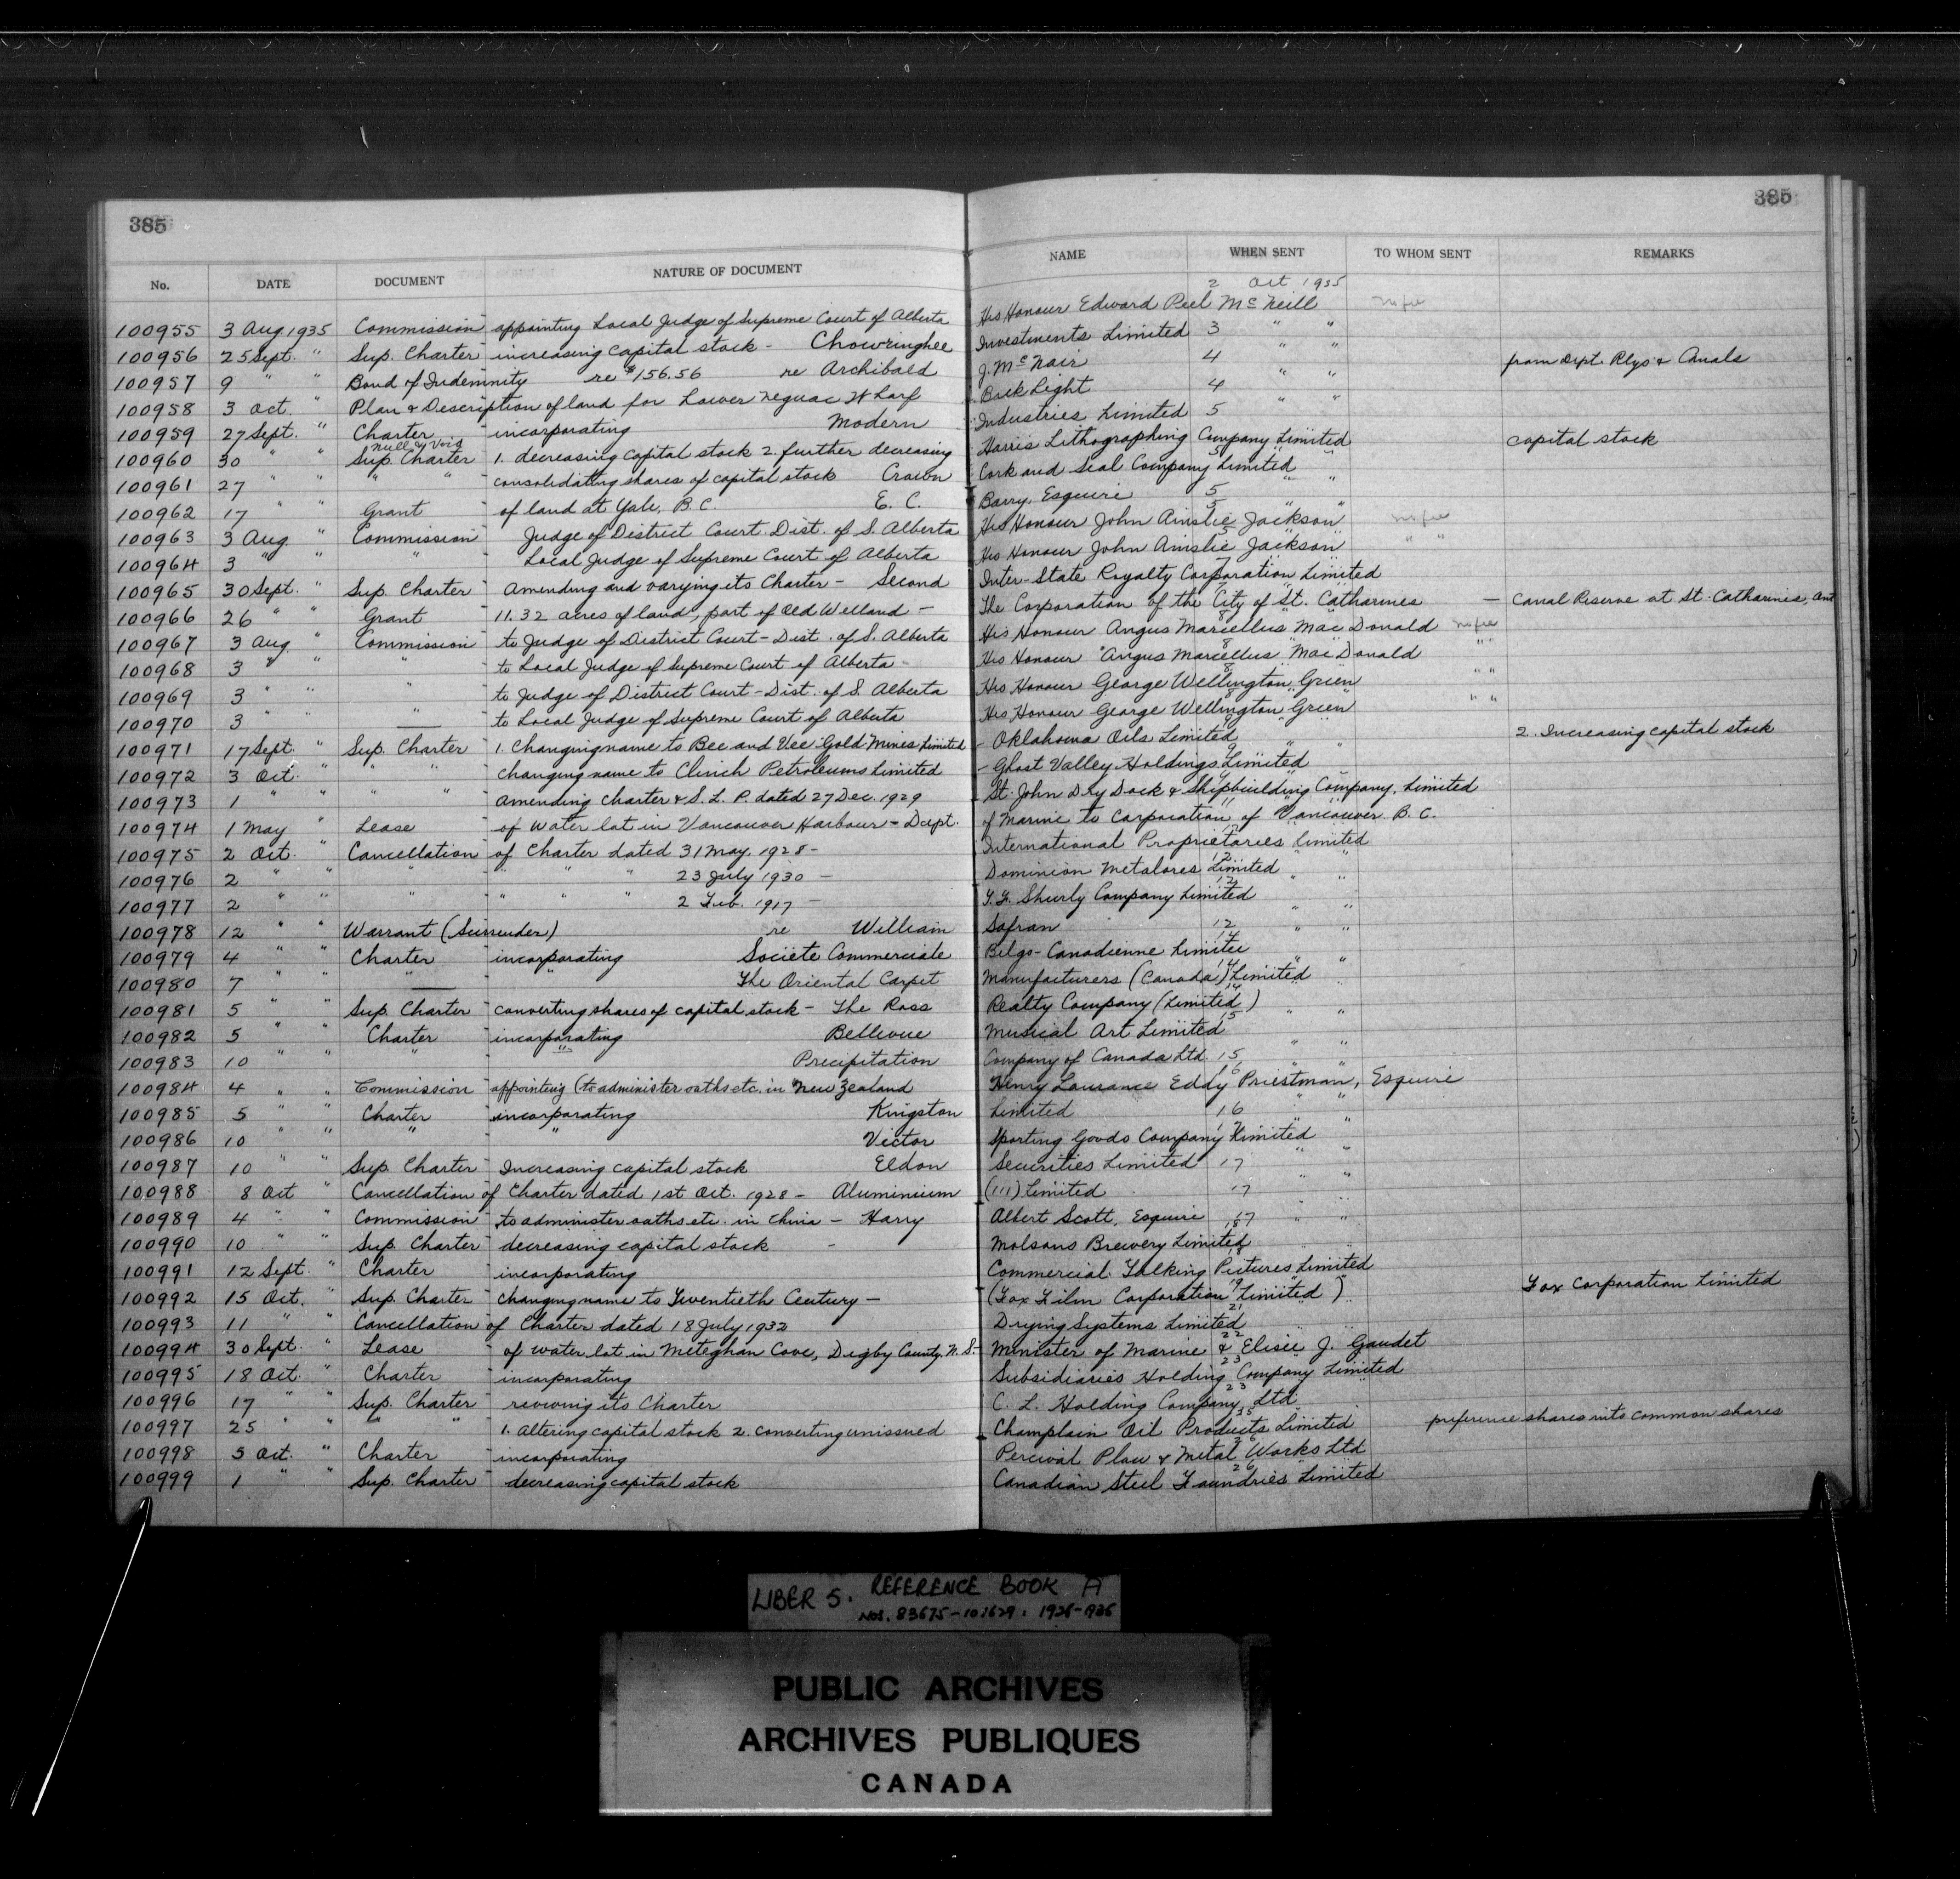 385
385
No. DATE DOCUMENT NATURE OF DOCUMENT NAME WHEN SENT TO WHOM SENT REMARKS
100955 3 Aug 1935 Commission appointing Local Judge of Supreme Court of Alberta His Honour Edward Peel McNeill 2 Oct 1935 no fee
100956 25 Sept. " Sup. Charter - increasing capital stock - Chowringhee Investments Limited 3 " "
100957 9 " " Bond of Indemnity re $156.56 re Archibald J. McNair 4 " " from Dept. Rlys & Canals
100958 3 Oct. " Plan & Description of land for Lower Neguac Wharf Back Light 4 " "
100959 27 Sept. " Charter - incorporating Modern Industries Limited 5
100960 30 " " Null & Void Sup. Charter 1. decreasing capital stock 2. further decreasing Harris Lithographing Company Limited 5 " capital stock
100961 27 " " " " consolidating shares of capital stock Crown Cork and Seal Company Limited " "
100962 17 " " Grant of land at Yale, B.C. E. C. Barry, Esquire 5
100963 3 Aug. " Commission Judge of District Court Dist. of S. Alberta His Honour John Ainslie Jackson 5 " " no fee
100964 3 " " " Local Judge of Supreme Court of Alberta His Honour John Ainslie Jackson 5 " "
100965 30 Sept. " Sup. Charter Amending and varying its Charter - Second Inter-State Royalty Corporation Limited 7
100966 26 " " Grant 11.32 acres of land, part of Old Welland - The Corporation of the City of St. Catharines 7 - Canal Reserve at St. Catharines, Ont
100967 3 Aug " Commission to Judge of District Court - Dist. of S. Alberta His Honour Angus Marcellus MacDonald 8 no fee
100968 3 " " " to Local Judge of Supreme Court of Alberta - His Honour Angus Marcellus MacDonald 8 " " " "
100969 3 " " " to Judge of District Court - Dist. of S. Alberta His Honour George Wellington Green 8 " "
100970 3 " " " to Local Judge of Supreme Court of Alberta His Honour George Wellington Green 8 " " " "
100971 17 Sept. " Sup. Charter 1. Changing name to Bee and Vee Gold Mines Limited - Oklahoma Oils Limited 8 " " 2. Increasing capital stock
100972 3 Oct. " " " changing name to Clinch Petroleums Limited - Ghost Valley Holdings Limited 9
100973 1 " " " " amending Charter & S. L. P. dated 27 Dec. 1929 St. John Dry Dock & Shipbuilding Company, Limited 9
100974 1 May " Lease of water lot in Vancouver Harbour - Dept. of Marine to Corporation of Vancouver B.C. 11
100975 2 Oct. " Cancellation of Charter dated 31 May, 1928 - International Proprietaries Limited
100976 2 " " " " " " 23 July 1930 - Dominion Metalores Limited 12 " "
100977 2 " " " " " " 2 Feb. 1917 - T. F. Shurly Company Limited 12 " "
100978 12 " " Warrant (Surrender) re William Safran 12 " "
100979 4 " " Charter incorporating Société Commerciale Belgo-Canadienne Limitée 14 " "
100980 7 " " The Oriental Carpet Manufacturers (Canada) Limited 14
100981 5 " " Sup. Charter converting shares of capital stock - The Ross Realty Company (Limited) 14 " "
100982 5 " " Charter incorporating Bellevue Musical Art Limited 15 " "
100983 10 " " " " Precipitation Company of Canada Ltd. 15 " "
100984 4 " " Commission appointing (to administer oaths etc. in New Zealand Henry Laurance Eddy Priestman, Esquire 16
100985 5 " " Charter incorporating Kingston Limited 16 " "
100986 10 " " " " Victor Sporting Goods Company Limited 17
100987 10 " " Sup. Charter Increasing capital stock Eldon Securities Limited 17 " "
100988 8 Oct " Cancellation of Charter dated 1st Oct. 1928 - Aluminium (111) Limited 17 " "
100989 4 " " Commission to administer oaths etc. in China - Harry Albert Scott, Esquire 17 " "
100990 10 " " Sup. Charter decreasing capital stock - Molsons Brewery Limited 18
100991 12 Sept. " Charter - incorporating Commercial Talking Pictures Limited 18
100992 15 Oct. " Sup. Charter changing name to Twentieth Century - (Fox Film Corporation Limited) 19 Fox Corporation Limited
100993 11 " " Cancellation of Charter dated 18 July 1932 Drying Systems Limited 21
100994 30 Sept. " Lease of water lot in Meteghan Cove, Digby County, N.S. - Minister of Marine & Elisée J. Gaudet 22
100995 18 Oct. " Charter - incorporating Subsidiaries Holding Company Limited 23
100996 17 " " Sup. Charter reviving its Charter C. L. Holding Company, Ltd. 23
100997 25 " " " " 1. Altering capital stock 2. converting unissued Champlain Oil Products Limited preference shares into common shares
100998 5 Oct. " Charter incorporating Percival Plow & Metal Works Ltd 26
100999 1 " " Sup. Charter decreasing capital stock Canadian Steel Foundries Limited 26
LIBER 5. REFERENCE BOOK A
Nos. 83675-101629: 1926-1936
PUBLIC ARCHIVES
ARCHIVES PUBLIQUES
CANADA